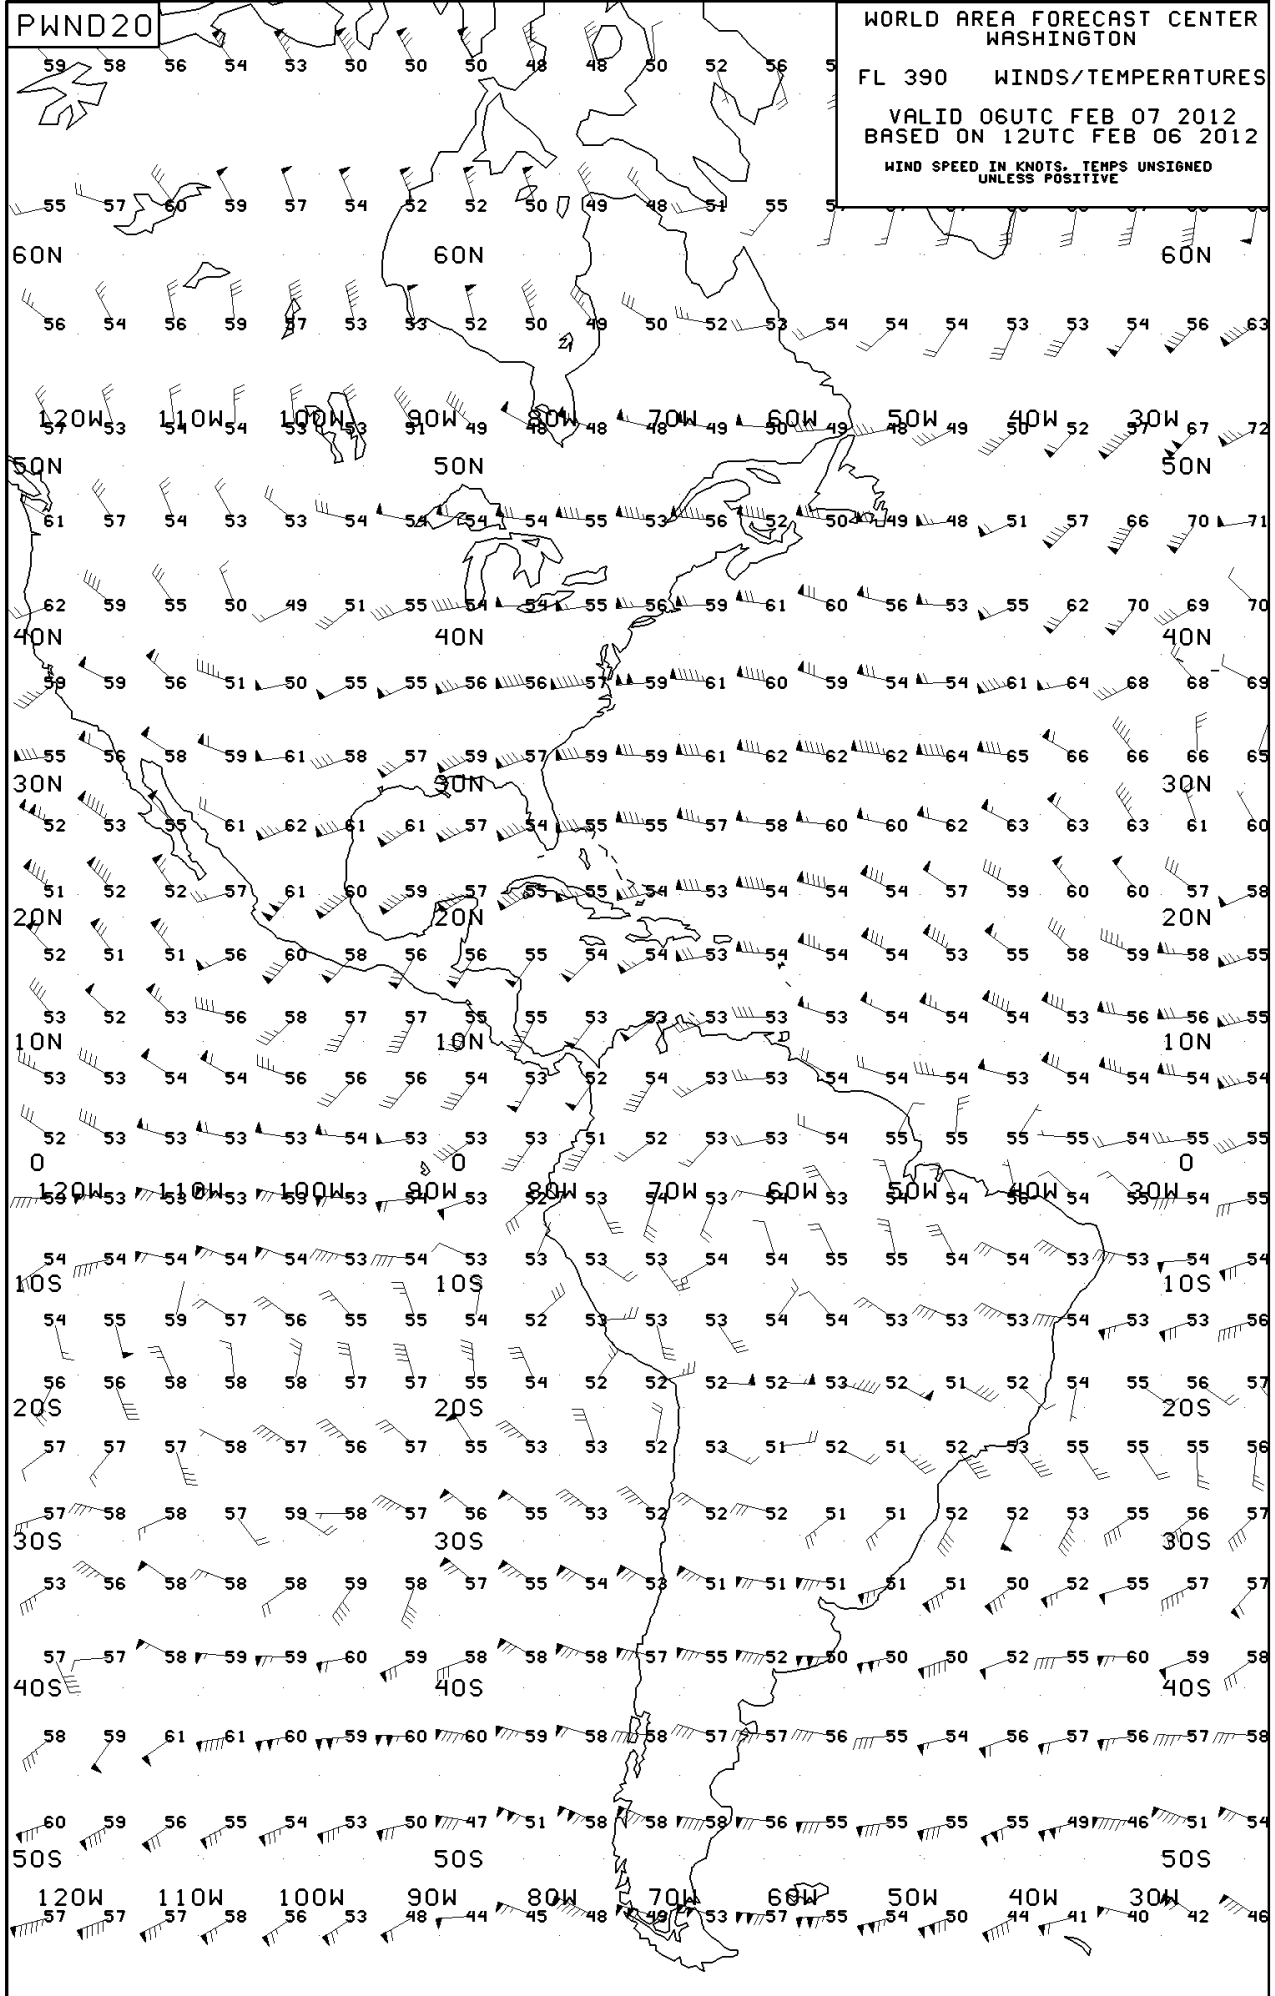 PWND20
WORLD AREA FORECAST CENTER
WASHINGTON
FL 390 WINDS/TEMPERATURES
VALID 06UTC FEB 07 2012
BASED ON 12UTC FEB 06 2012
WIND SPEED IN KNOTS, TEMPS UNSIGNED
UNLESS POSITIVE
59 58 56 54 53 50 50 50 48 48 50 52 56
55 57 60 59 57 54 52 52 50 49 48 51 55
60N 60N 60N
56 54 56 59 57 53 53 52 50 49 50 52 53 54 54 54 53 53 54 56 63
120W 110W 100W 90W 80W 70W 60W 50W 40W 30W
57 53 54 54 53 53 51 49 48 48 48 49 50 49 48 49 50 52 57 67 72
50N 50N 50N
61 57 54 53 53 54 54 54 54 55 53 56 52 50 49 48 51 57 66 70 71
62 59 55 50 49 51 55 54 54 55 56 59 61 60 56 53 55 62 70 69 70
40N 40N 40N
59 59 56 51 50 55 55 56 56 57 59 61 60 59 54 54 61 64 68 68 69
55 56 58 59 61 58 57 59 57 59 59 61 62 62 62 64 65 66 66 66 65
30N 30N 30N
52 53 55 61 62 61 61 57 54 55 55 57 58 60 60 62 63 63 63 61 60
51 52 52 57 61 60 59 57 55 55 54 53 54 54 54 57 59 60 60 57 58
20N 20N 20N
52 51 51 56 60 58 56 56 55 54 54 53 54 54 54 53 55 58 59 58 55
53 52 53 56 58 57 57 55 55 53 53 53 53 53 54 54 54 53 56 56 55
10N 10N 10N
53 53 54 54 56 56 56 54 53 52 54 53 53 54 54 54 53 54 54 54 54
52 53 53 53 53 54 53 53 53 51 52 53 53 54 55 55 55 55 54 55 55
0 0 0
120W 110W 100W 90W 80W 70W 60W 50W 40W 30W
53 53 53 53 53 53 54 53 52 53 54 53 54 53 54 54 56 54 55 54 55
54 54 54 54 54 53 54 53 53 53 53 54 54 55 55 54 54 53 53 54 54
10S 10S 10S
54 55 59 57 56 55 55 54 52 53 53 53 54 54 53 53 53 54 53 53 56
56 56 58 58 58 57 57 55 54 52 52 52 52 53 52 51 52 54 55 56 57
20S 20S 20S
57 57 57 58 57 56 57 55 53 53 52 53 51 52 51 52 53 55 55 55 56
57 58 58 57 59 58 57 56 55 53 52 52 52 51 51 52 52 53 55 56 57
30S 30S 30S
53 56 58 58 58 59 58 57 55 54 53 51 51 51 51 51 50 52 55 57 57
57 57 58 59 59 60 59 58 58 58 57 55 52 50 50 50 52 55 60 59 58
40S 40S 40S
58 59 61 61 60 59 60 60 59 58 58 57 57 56 55 54 56 57 56 57 58
60 59 56 55 54 53 50 47 51 58 58 58 56 55 55 55 55 49 46 51 54
50S 50S 50S
120W 110W 100W 90W 80W 70W 60W 50W 40W 30W
57 57 57 58 56 53 48 44 45 48 49 53 57 55 54 50 44 41 40 42 46